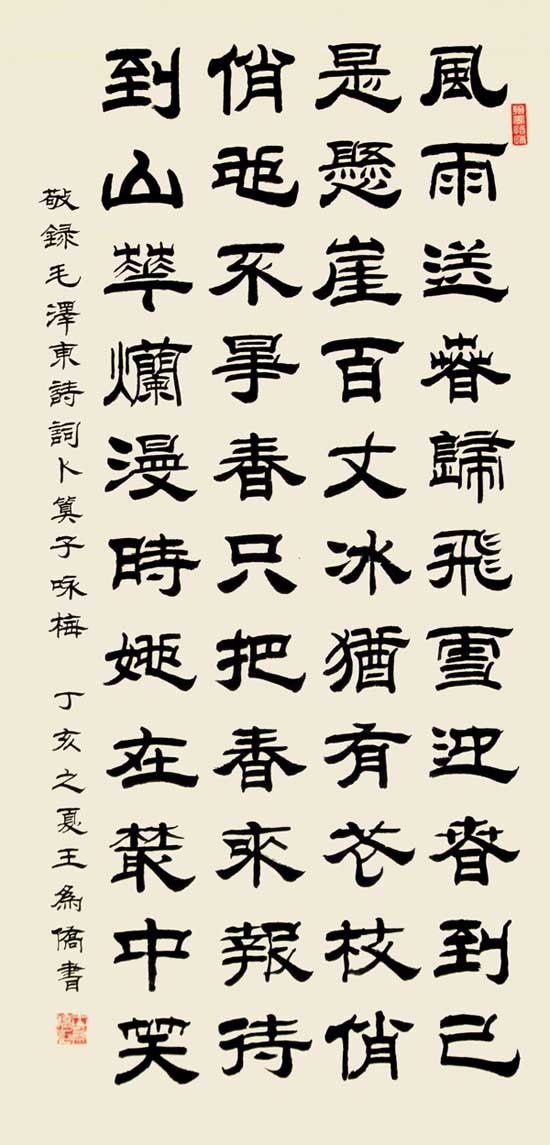 風雨送春歸飛雪迎春到已
是懸崖百丈冰猶有花枝俏
俏也不爭春只把春來報待
到山華爛漫時她在叢中笑
敬録毛澤東詩詞卜算子咏梅 丁亥之夏王為僑書